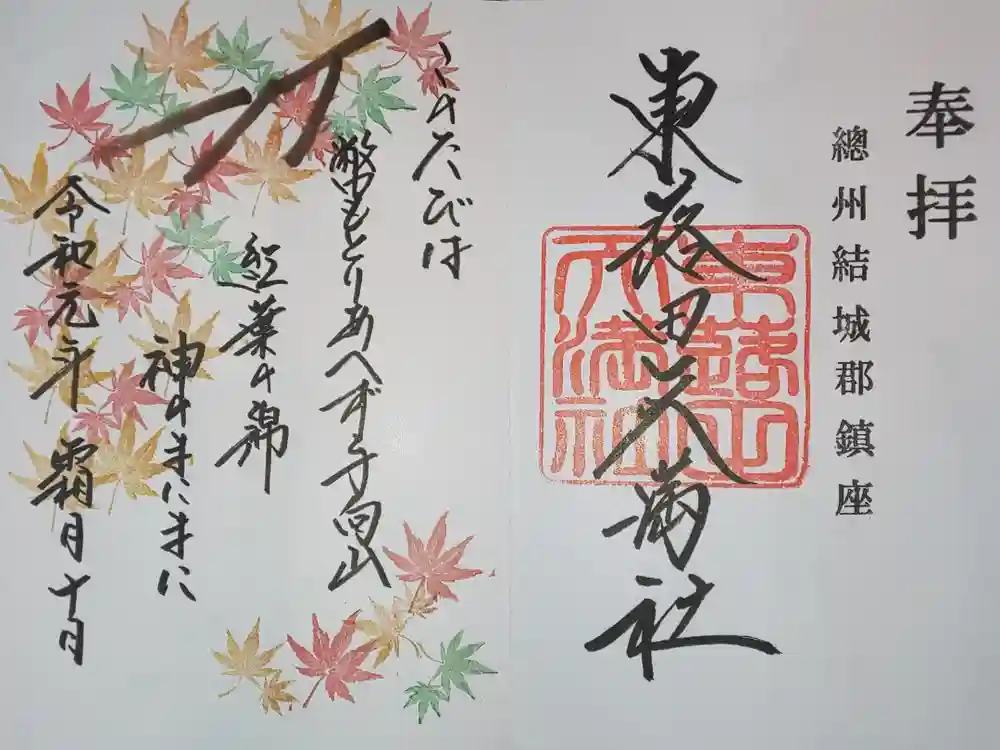 奉拝
總州結城郡鎮座
東蕗田天満社
東蕗田
天満社
このたびは
幣もとりあへず手向山
紅葉の錦
神のまにまに
令和元年 霜月十日